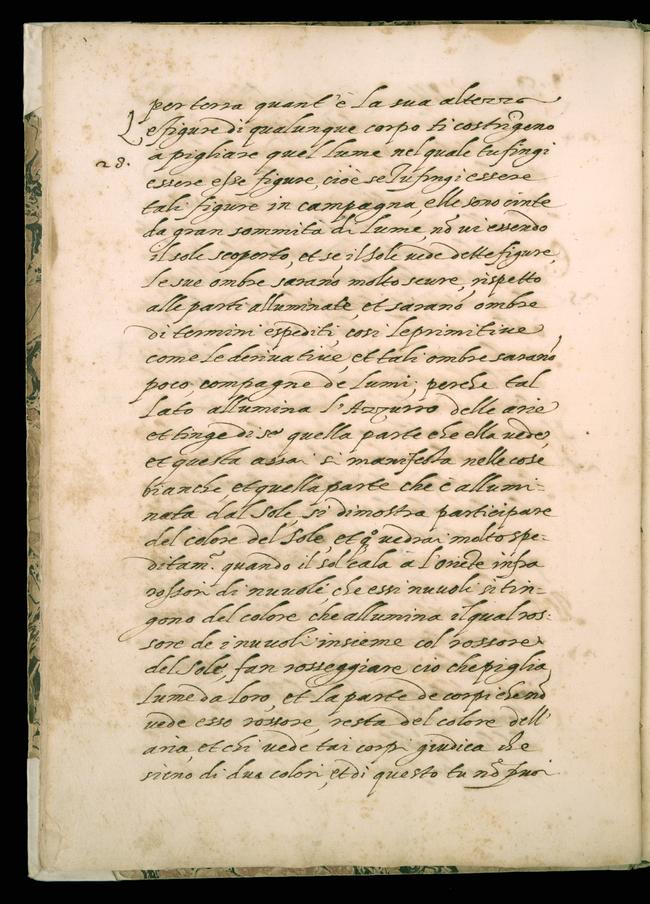 per terra quant'è la sua altezza
Le figure di qualunque corpo ti costrigeno
28.
a pigliare quel lume nel quale tu fingi
essere esse figure, cioè se tu fingi essere
tali figure in campagna, elle sono cinte
da gran sommità di lume, nō vi essendo
il sole scoperto, et se il sole vede dette figure,
le sue ombre sarano molto scure, rispetto
alle parti alluminate, et sarano ombre
di termini espediti, cosi le primitive
come le derivative, et tali ombre sarano
poco compagne de lumi, perche tal
lato allumina l'Azzurro delle arie
et tinge di se quella parte che ella vede,
et questa assai si manifesta nelle cose
bianche et quella parte che è allumi-
nata dal sole, si dimostra participare
del colore del sole, et qº vedrai molto spe-
ditam. quando il sol cala a l'oriēte infra
rossori di nuvole, che essi nuvoli si tin-
gono del colore che allumina il qual ros-
sore de i nuvoli insieme col rossore
del sole, fan rosseggiare ciò che piglia
lume da loro, et la parte de corpi che nō
vede esso rossore, resta del colore dell'
aria, et chi vede tai corpi giudica che
sieno di dua colori, et di questo tu nō puoi